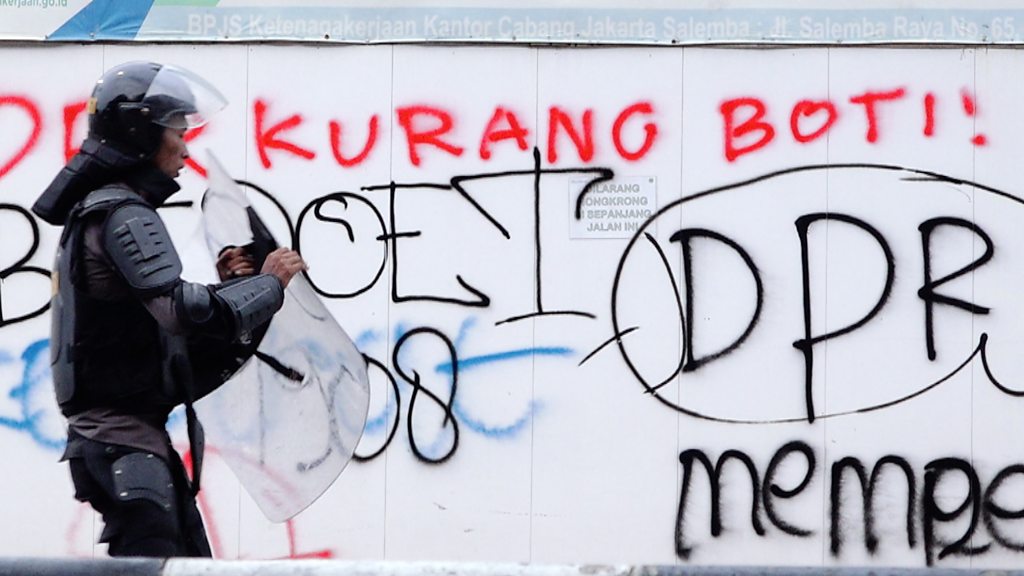 kerjaan.go.id
BPJS Ketenagakerjaan Kantor Cabang Jakarta Salemba : Jl. Salemba Raya No. 65,
KURANG BOTI!
DILARANG
NONGKRONG
DI SEPANJANG
JALAN INI
DPR
08
mempe